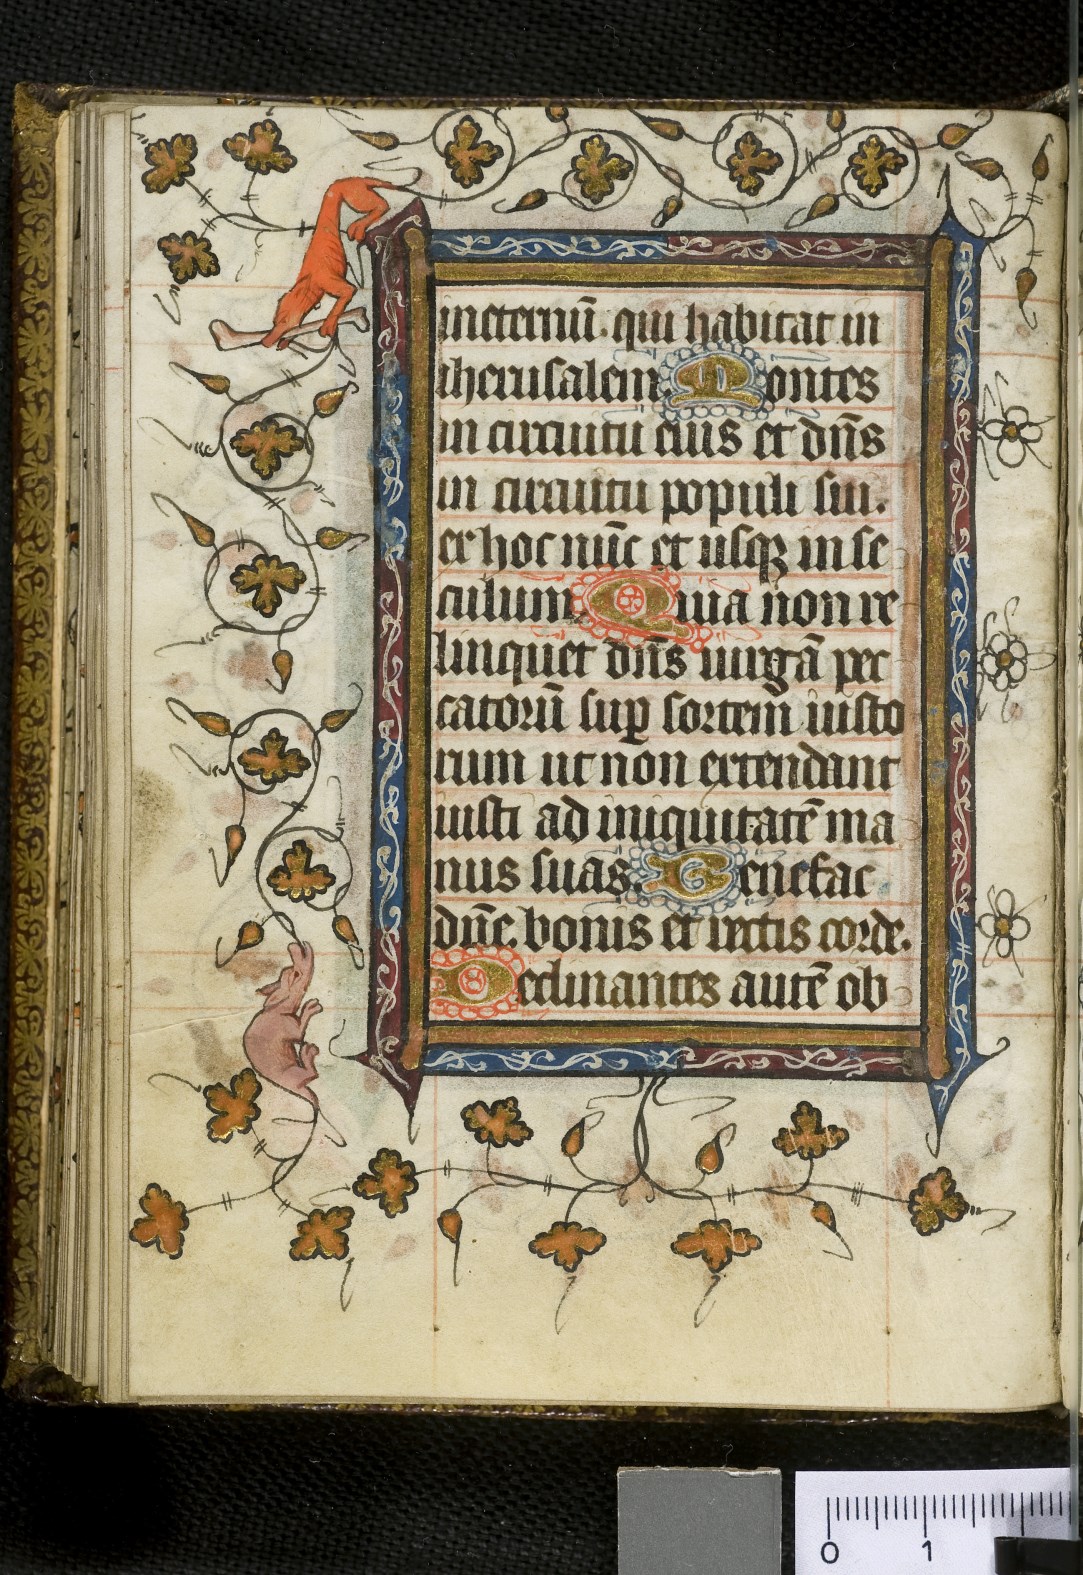 in eternū. qui habitat in
iherusalem. Montes
in circuitu eius et dn̄s
in circuitu populi sui.
ex hoc nūc et usqꝫ in se
culum. Quia non re
linquet dn̄s uirgā pec
catorū suꝑ sortem iusto
rum ut non extendant
iusti ad iniquitatē ma
nus suas. Benefac
dn̄e. bonis et rectis corde.
Declinantes autē ob
0 1